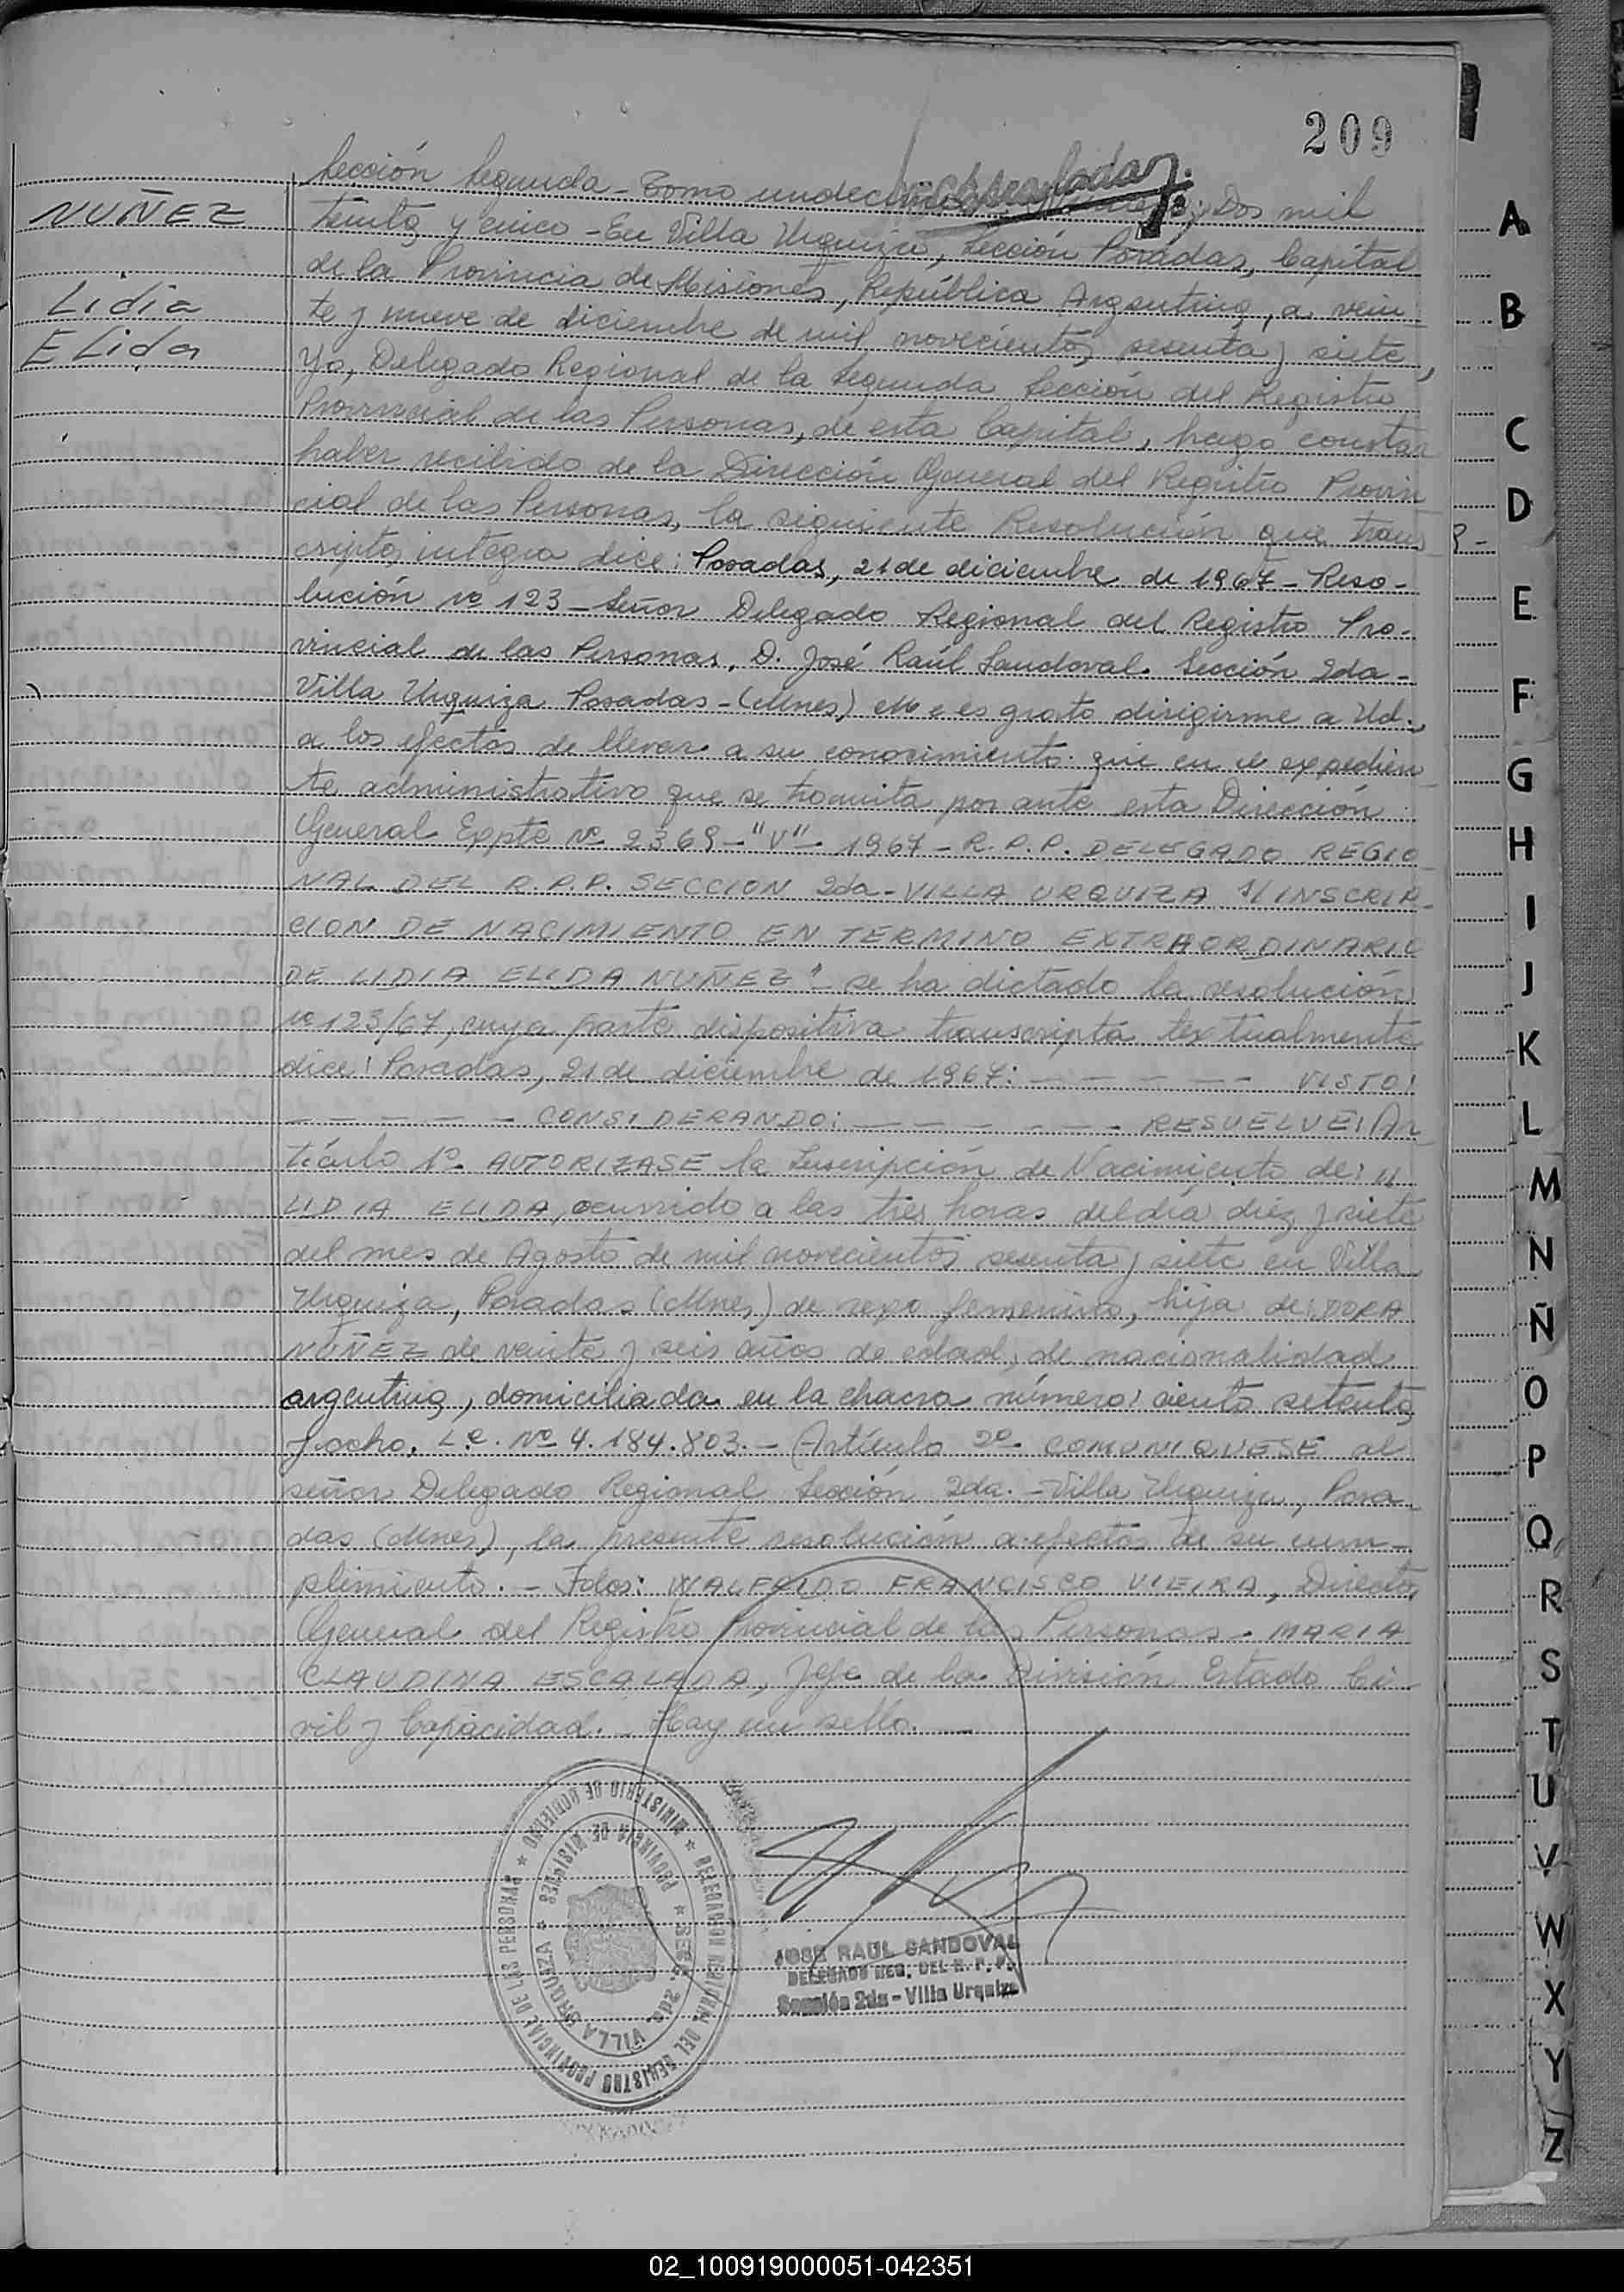 209
Sección Segunda - Tomo undécimo Dos mil
NUÑEZ
Lidia
Elida
treinta y cinco - En Villa Urquiza, Sección Posadas, Capital
de la Provincia de Misiones, República Argentina, a vein
te y nueve de diciembre de mil novecientos sesenta y siete,
Yo, Delegado Regional de la Segunda Sección del Registro
Provincial de las Personas, de esta Capital, hago constar
haber recibido de la Dirección General del Registro Provin
cial de las Personas, la siguiente Resolución que trans
cripta, integra dice: Posadas, 21 de diciembre de 1967 - Reso-
lución Nº 123 - Señor Delegado Regional del Registro Pro-
vincial de las Personas, D. José Raúl Sandoval. Sección 2da -
Villa Urquiza Posadas - (Mnes) Me es grato dirigirme a Ud.,
a los efectos de llevar a su conocimiento: que en el expedien
te administrativo que se tramita por ante esta Dirección
General Expte Nº 2369 - "V" - 1967 - R.P.P. DELEGADO REGIO
NAL DEL R.P.P. SECCION 2da - VILLA URQUIZA S/ INSCRIP-
CION DE NACIMIENTO EN TERMINO EXTRAORDINARIO
DE LIDIA ELIDA NUÑEZ" - se ha dictado la resolución
Nº 123/67, cuya parte dispositiva transcripta textualmente
dice: Posadas, 21 de diciembre de 1967: - - - - - - VISTO:
- - - - - - CONSIDERANDO: - - - - - - RESUELVE: Ar
tículo 1º - AUTORIZASE la Inscripción de Nacimiento de: "
LIDIA ELIDA, ocurrido a las tres horas del día diez y siete
del mes de Agosto de mil novecientos sesenta y siete en Villa
Urquiza, Posadas (Mnes) de sexo femenino, hija de: DORA
NUÑEZ de veinte y seis años de edad, de nacionalidad
argentina, domiciliada en la chacra número: ciento setenta
y ocho. L.C. Nº 4.184.803. - Artículo 2º - COMUNIQUESE al
señor Delegado Regional Sección 2da. - Villa Urquiza, Posa-
das (Mnes), la presente resolución a efectos de su cum-
plimiento. - Fdos: WALFRIDO FRANCISCO VIEIRA, Director
General del Registro Provincial de las Personas - MARIA
CLAUDINA ESCALADA, Jefe de la División Estado Ci
vil y Capacidad. - Hay un sello. -
MINISTERIO DE GOBIERNO ★ DELEGACION REGIONAL DEL REGISTRO PROVINCIAL DE LAS PERSONAS ★
PROVINCIA DE MISIONES ★ SECC. 2da. VILLA URQUIZA ★
JOSE RAUL SANDOVAL
DELEGADO REG. DEL R. P. P.
Sección 2da - Villa Urquiza
A
B
C
D
E
F
G
H
I
J
K
L
M
N
Ñ
O
P
Q
R
S
T
U
V
W
X
Y
Z
02_100919000051-042351